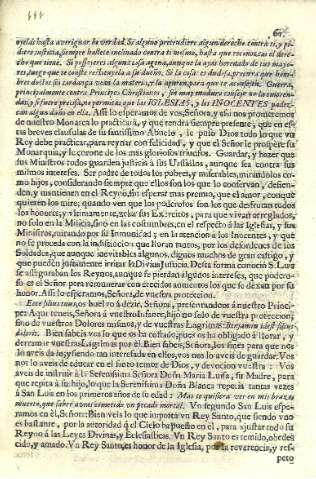 67
oyeldo hasta averiguar la verdad. Si alguno pretendiere algun derecho contra ti, y pi-
diere justicia, siempre hallese inclinado contra ti mismo, hasta que reconozcas el dere-
cho que tiene. Si posseyeres alguna cosa agena, aunque la ayas heredado de tus mayo-
res, luego que te conste restituyela a su dueño. Si la cosa es dudosa, procura que hom-
bres doctos sin tardança vean la materia, y la apuren, para que te aconsejen. Guerra,
principalmente contra Principes Christianos, sin muy madura consejo no la empren-
das, y si fuere precisa, no permitas que las IGLESIAS, y los INOCENTES padez-
can algun daño en ella. Assi lo esperamos de vos, Señora, y assi nos prometemos
de nuestro Monarca lo practicará, y que tendra siempre presente, que en es-
tas breves clausulas de su santissimo Abuelo, le puso Dios todo lo que vn
Rey debe practicar, para reynar con felicidad, y que el Señor le prospere su
Monarquia, y le corone de los mas gloriosos triunfos. Guardar, y hazer que
sus Ministros todos guarden justicia à sus Vassallos, aunque sea contra sus
mismos intereses. Ser padre de todos los pobres, y miserables, mirandolos co-
mo hijos, considerando siempre que ellos son los que lo conservan, defien-
den, y mantienen en el Reyno, sin esperar mas premio, que el amor, conque
quieren los mire; quando ven que los poderosos son los que desfrutan todos
los honores, y vltimamente, zelar sus Exercitos, para que vivan arreglados,
no solo en la Milicia, sino en las costumbres, en el respecto à las Iglesias, y sus
Ministros, mirando por su Inmunidad y en la atencion à los Inocentes, y que
no se proceda con la indistincion que lloran muchos, por los desordenes de los
Soldados, que aunque inevitables algunos, dignos muchos de gran castigo, y
que pueden justamente irritar la Divina Justicia. Desta forma conoció S. Luis
se asseguraban los Reynos, aunque se pierdan algunos intereses, que poderoso
es el Señor para remunerar con crecidos aumentos los que se dexan por su
honor. Assi lo esperamos, Señora, de vuestra proteccion.
Ecce filius tuus, os buelvo à dezir, Señora, presentandoos à nuestro Princi-
pe: Aqui teneis, Señora à vuestro Infante, hijo no solo de vuestra proteccion,
sino de vuestros Dolores mismos, y de vuestras Lagrimas: Benjamin idest filius
doloris. Bien sabeis vos lo que os ha costado, pues os ha obligado à llorar, y
derramar vuestras Lagrimas por èl. Bien sabeis, Señora, los fines para que nos
lo aveis dado, y siendo tan interessada en ellos, vos nos lo aveis de guardar. Vos
nos lo aveis de educar en el santo temor de Dios, y devocion vuestra: Vos
aveis de instruir à la Serenissima Señora Doña Maria Luisa, su Madre, para
que repita à su hijo, lo que la Serenissima Doña Blanca repetia tantas vezes
à San Luis en los primeros años de su edad: Mas te quisiera ver en mis brazos
muerto, que saber avias cometido vn pecado mortal. Vn segundo San Luis espe-
ramos en èl, Señora: Bien veis lo que importa vn Rey Santo, que siendo vno
es bastante, por la autoridad q̃ el Cielo ha puesto en èl, para ajustar todo su
Reyno à las Leyes Divinas, y Eclesiasticas. Vn Rey Santo es temido, obede-
cido, y amado. Vn Rey Santo, es honor de la Iglesia, por la reverencia, y res-
peto